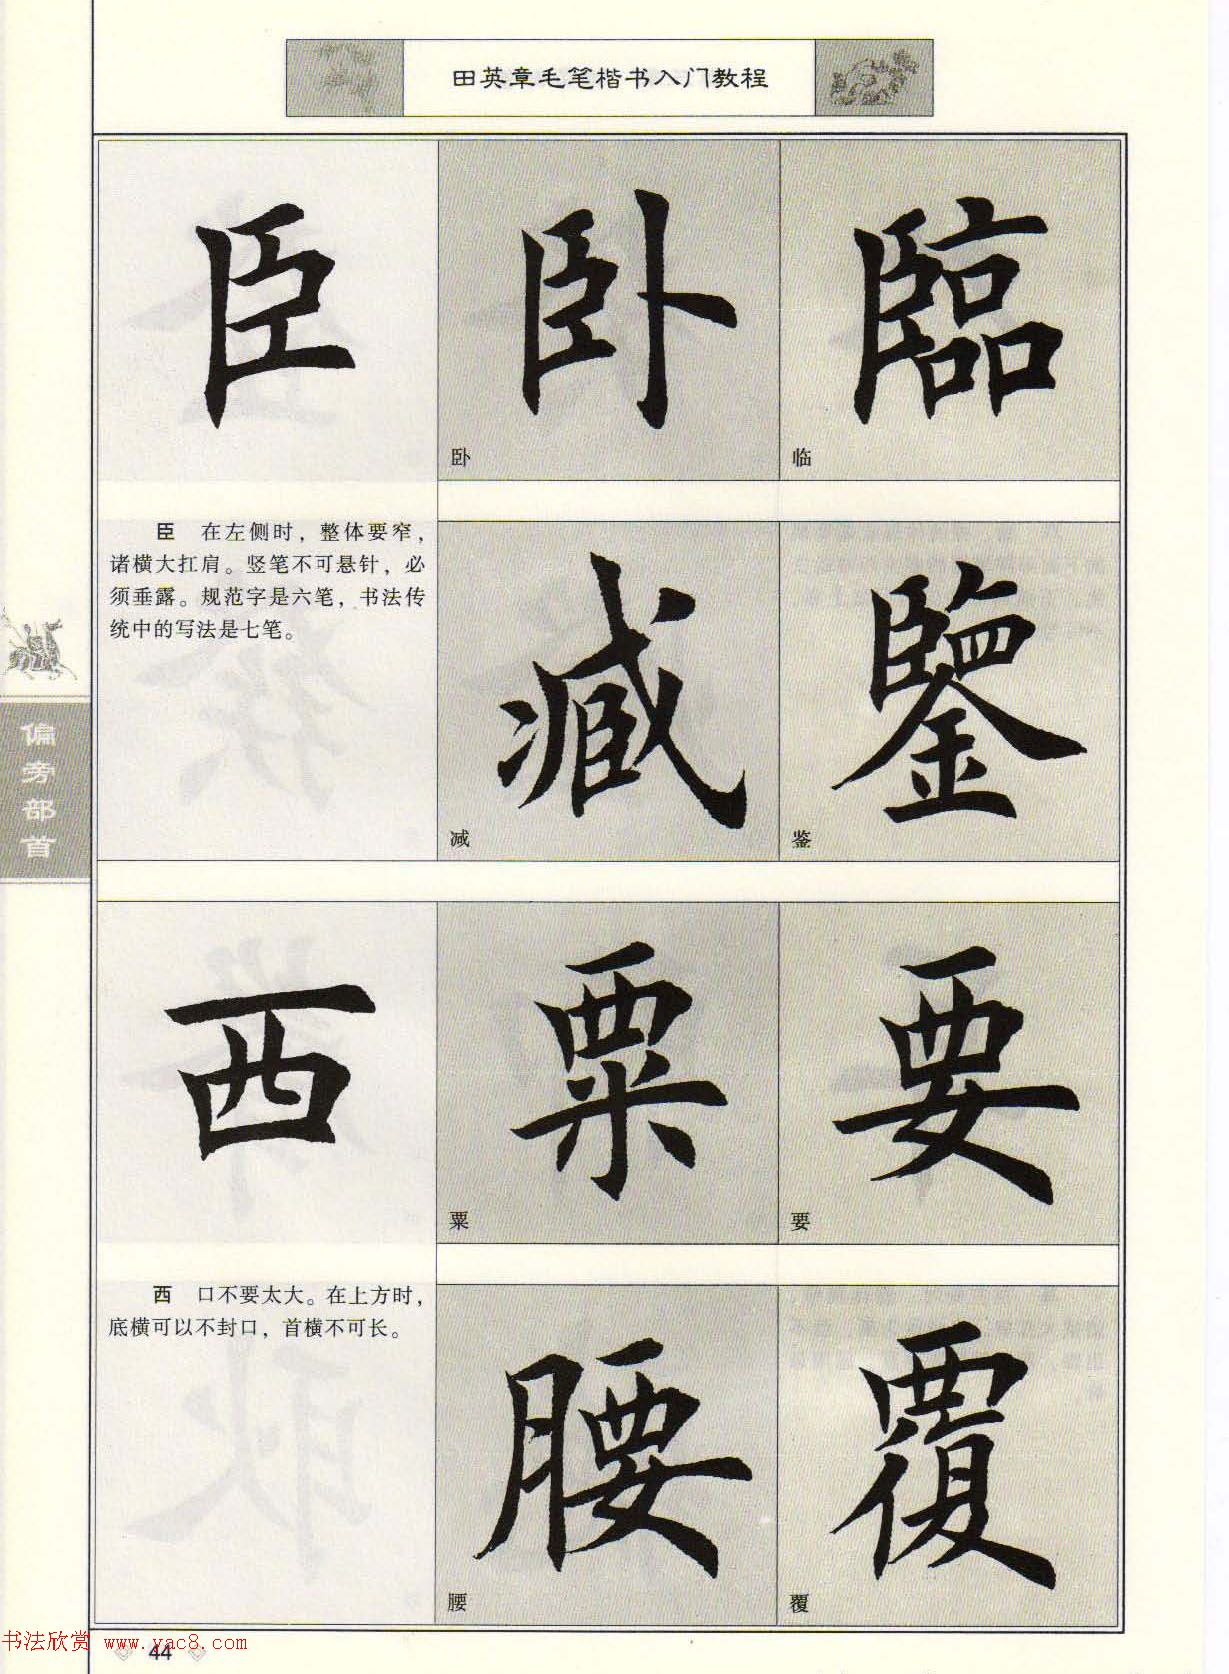 田英章毛笔楷书入门教程
臣 卧 臨
卧 临
臣 在左侧时，整体要窄，
诸横大扛肩。竖笔不可悬针，必
须垂露。规范字是六笔，书法传
统中的写法是七笔。
臧 鑒
减 鉴
偏旁部首
西 粟 要
粟 要
西 口不要太大。在上方时，
底横可以不封口，首横不可长。
腰 覆
腰 覆
书法欣赏 www.yac8.com
44